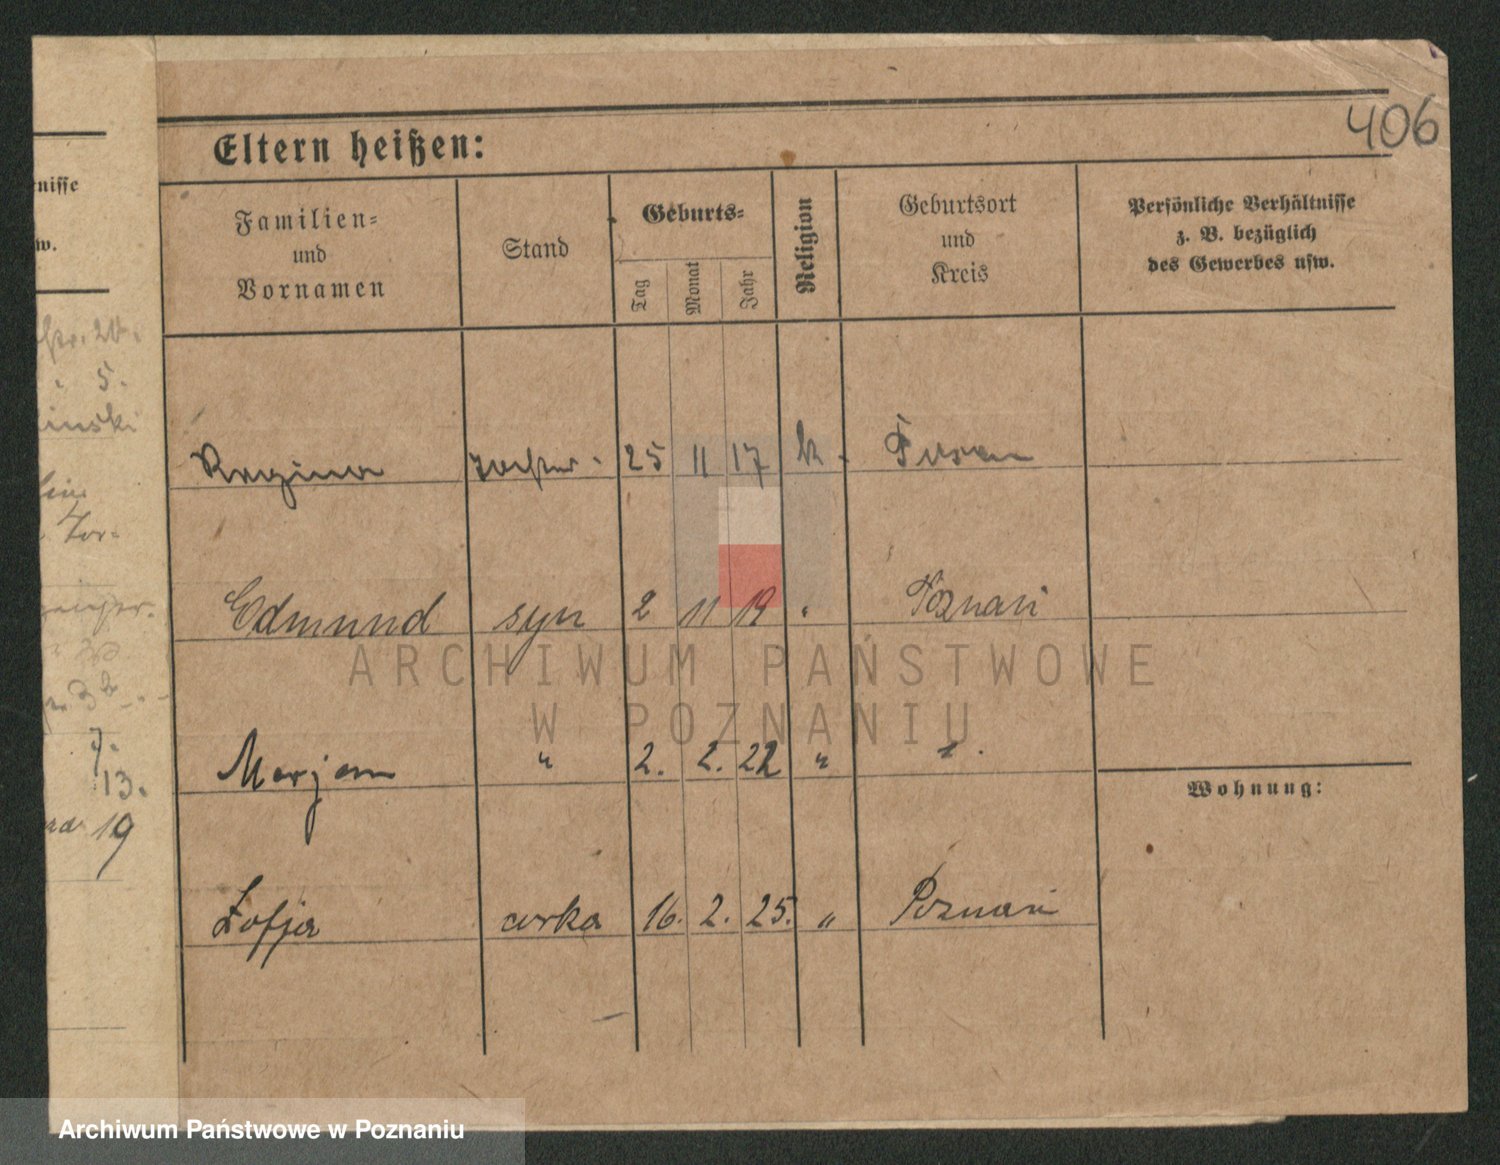 406
Eltern heißen:
Familien-
und
Vornamen
Stand
Geburts-
Tag
Monat
Jahr
Religion
Geburtsort
und
Kreis
Persönliche Verhältnisse
z. B. bezüglich
des Gewerbes usw.
Regina Tochter 25 11 17 k. Posen
Edmund syn 2 11 19 " Poznań
Marjan " 2. 2. 22 " "
Wohnung:
Zofja corka 16. 2. 25. " Poznań
nisse
w.
str. 20.
5.
inski
7.
13.
19
ARCHIWUM PAŃSTWOWE
W POZNANIU
Archiwum Państwowe w Poznaniu